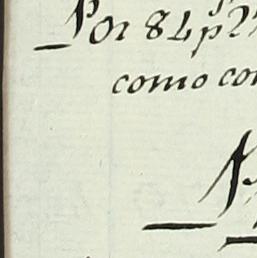 Por 84 p 2
como co